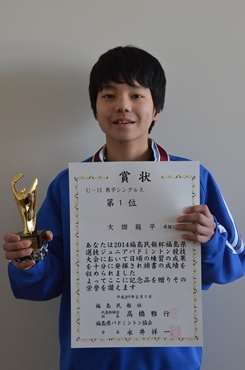 賞状
U-15 男子シングルス
第1位
大畑 龍平
あなたは2014福島民報杯福島県
選抜ジュニアバドミントン競技
大会において日頃の練習の成績
を十分に発揮され頭書の成績を
収められました
よってここに記念品を贈りその
栄誉を讃えます
福島民報社
高橋雅行
福島県バドミントン協会
会長 永井祥一